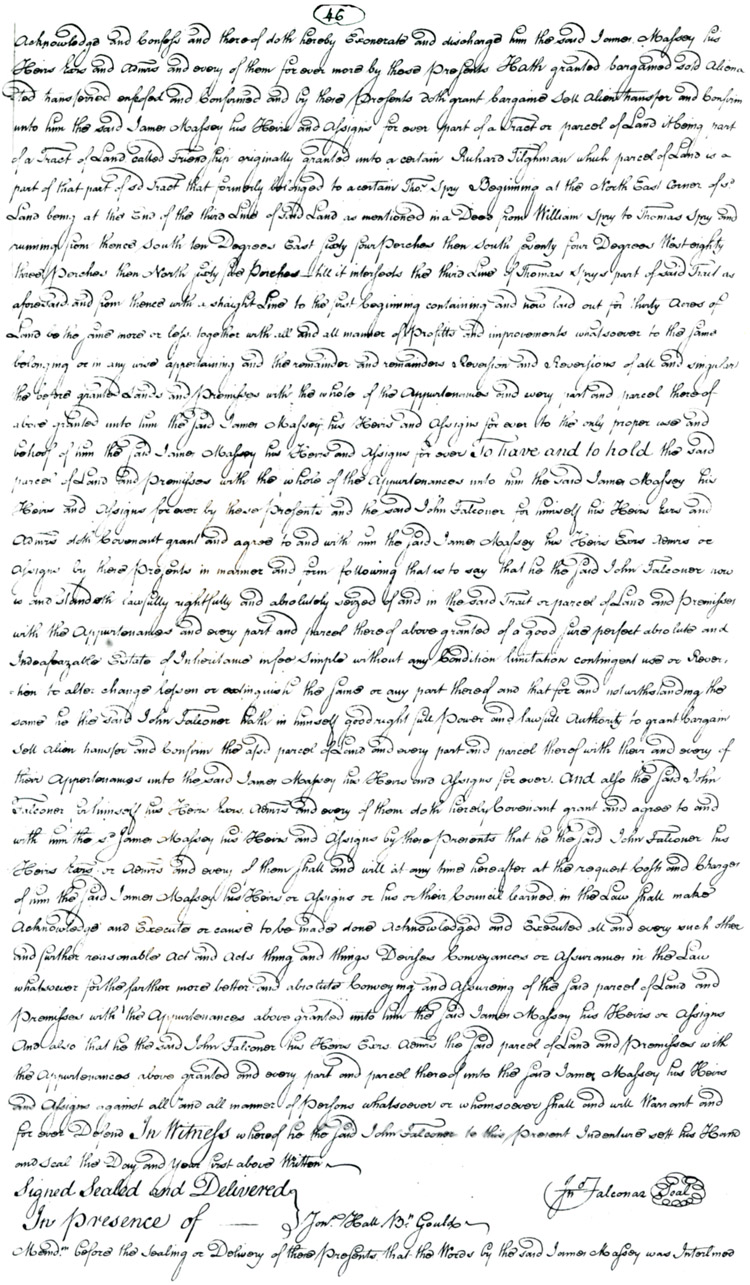 46
Acknowledge and Confess and thereof doth hereby Exonerate and discharge him the said James Massey his
Heirs Exrs and Admrs and every of them for ever more by these Presents Hath granted bargained sold Aliena
ted transferred enfeofed and Confirmed and by these Presents doth grant bargaine Sell Alien transfer and Confirm
unto him the said James Massey his Heirs and Assigns for ever part of a Tract or parcel of Land it being part
of a Tract of Land called Friendship originally granted unto a certain Richard Tilghman which parcel of Land is a
part of that part of sd Tract that formerly belonged to a certain Thos Spry Beginning at the North East Corner of sd
Land being at the End of the third Line of said Land as mentioned in a Deed from William Spry to Thomas Spry and
running from thence South ten Degrees East sixty four Perches then South seventy four Degrees West eighty
three Perches then North sixty five Perches till it intersects the third Line of Thomas Sprys part of said Tract as
aforesaid and from thence with a straight Line to the first beginning containing and now laid out for thirty Acres of
Land be the same more or less together with all and all manner of Profitts and improvements whatsoever to the same
belonging or in any wise appertaining and the remainder and remainders Reversion and Reversions of all and singular
the before granted Lands and Premises with the whole of the Appurtenances and every part and parcel thereof
above granted unto him the said James Massey his Heirs and Assigns for ever to the only proper use and
behoof of him the said James Massey his Heirs and Assigns for ever To have and to hold the said
parcel of Land and Premisses with the whole of the Appurtenances unto him the said James Massey his
Heirs and Assigns for ever by these Presents and the said John Falconer for himself his Heirs Exrs and
Admrs doth Covenant grant and agree to and with him the said James Massey his Heirs Exrs Admrs or
Assigns by these Presents in manner and form following that is to say that he the said John Falconer now
is and standeth lawfully rightfully and absolutely seized of and in the said Tract or parcel of Land and Premisses
with the Appurtenances and every part and parcel thereof above granted of a good sure perfect absolute and
Indeafeazable Estate of Inheritance in fee simple without any Condition limitation contingent use or Rever
tion to alter change lessen or extinguish the same or any part thereof and that for and notwithstanding the
same he the said John Falconer hath in himself good right full Power and lawfull Authority to grant bargain
Sell Alien transfer and Confirm the afsd parcel of Land and every part and parcel thereof with their and every of
their Appertenances unto the said James Massey his Heirs and Assigns for ever. And also the said John
Falconer for himself his Heirs Exrs. Admrs and every of them doth hereby Covenant grant and agree to and
with him the sd James Massey his Heirs and Assigns by these Presents that he the said John Falconer his
Heirs Exrs or Admrs and every of them shall and will at any time hereafter at the request Costs and Charges
of him the said James Massey his Heirs or Assigns or his or their Council learned in the Law shall make
Acknowledge and Execute or cause to be made done Acknowledged and Executed all and every such other
and further reasonable Act and Acts thing and things Devises Conveyances or Assurances in the Law
whatsoever for the farther more better and absolute Conveying and Assureing of the said parcel of Land and
Premisses with the Appurtenances above granted unto him the said James Massey his Heirs or Assigns
And also that he the said John Falconer his Heirs Exrs Admrs the said parcel of Land and Premisses with
the Appurtenances above granted and every part and parcel thereof unto the said James Massey his Heirs
and Assigns against all and all manner of Persons whatsoever or whomsoever shall and will Warrant and
for ever Defend In Witness whereof he the said John Falconer to this present Indenture sett his Hand
and Seal the Day and Year first above Written
Signed Sealed and Delivered
In presence of Jon. Hall Bn Gould
Jno Falconar Seal
Memdm before the Sealing or Delivery of these Presents that the Words by the said James Massey was Interlined